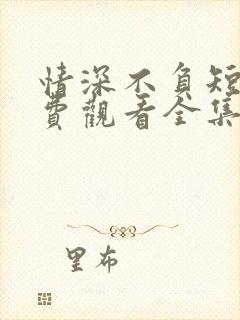 情深不負短
費觀看全集
里布